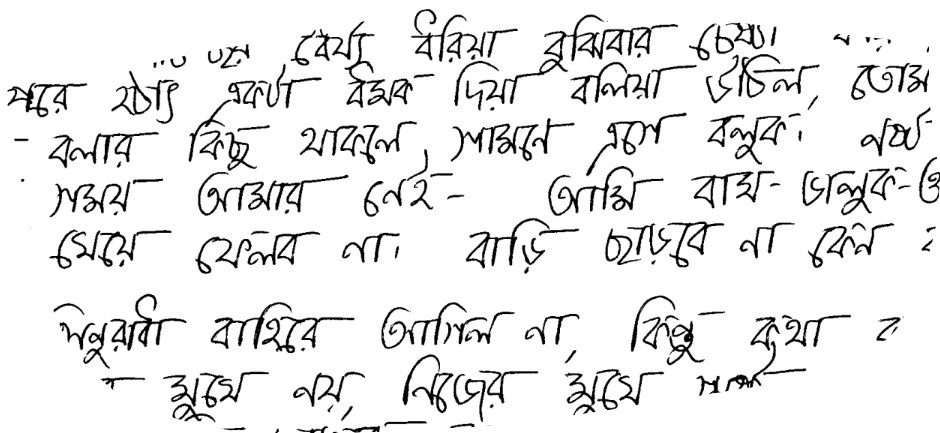 ধৈর্য্য ধরিয়া বুঝিবার চেষ্টা
পরে হঠাৎ একটা ধমক দিয়া বলিয়া উঠিল,
বলার কিছু থাকলে, সামনে এসে বলুক। নষ্ট
সময় আমার নেই- আমি বাঘ-ভালুক-ও
খেয়ে ফেলব না। বাড়ি ছাড়বে না কেন
অনুরাধা বাহিরে আসিল না, কিন্তু কথা
মুখে নয়, নিজের মুখে